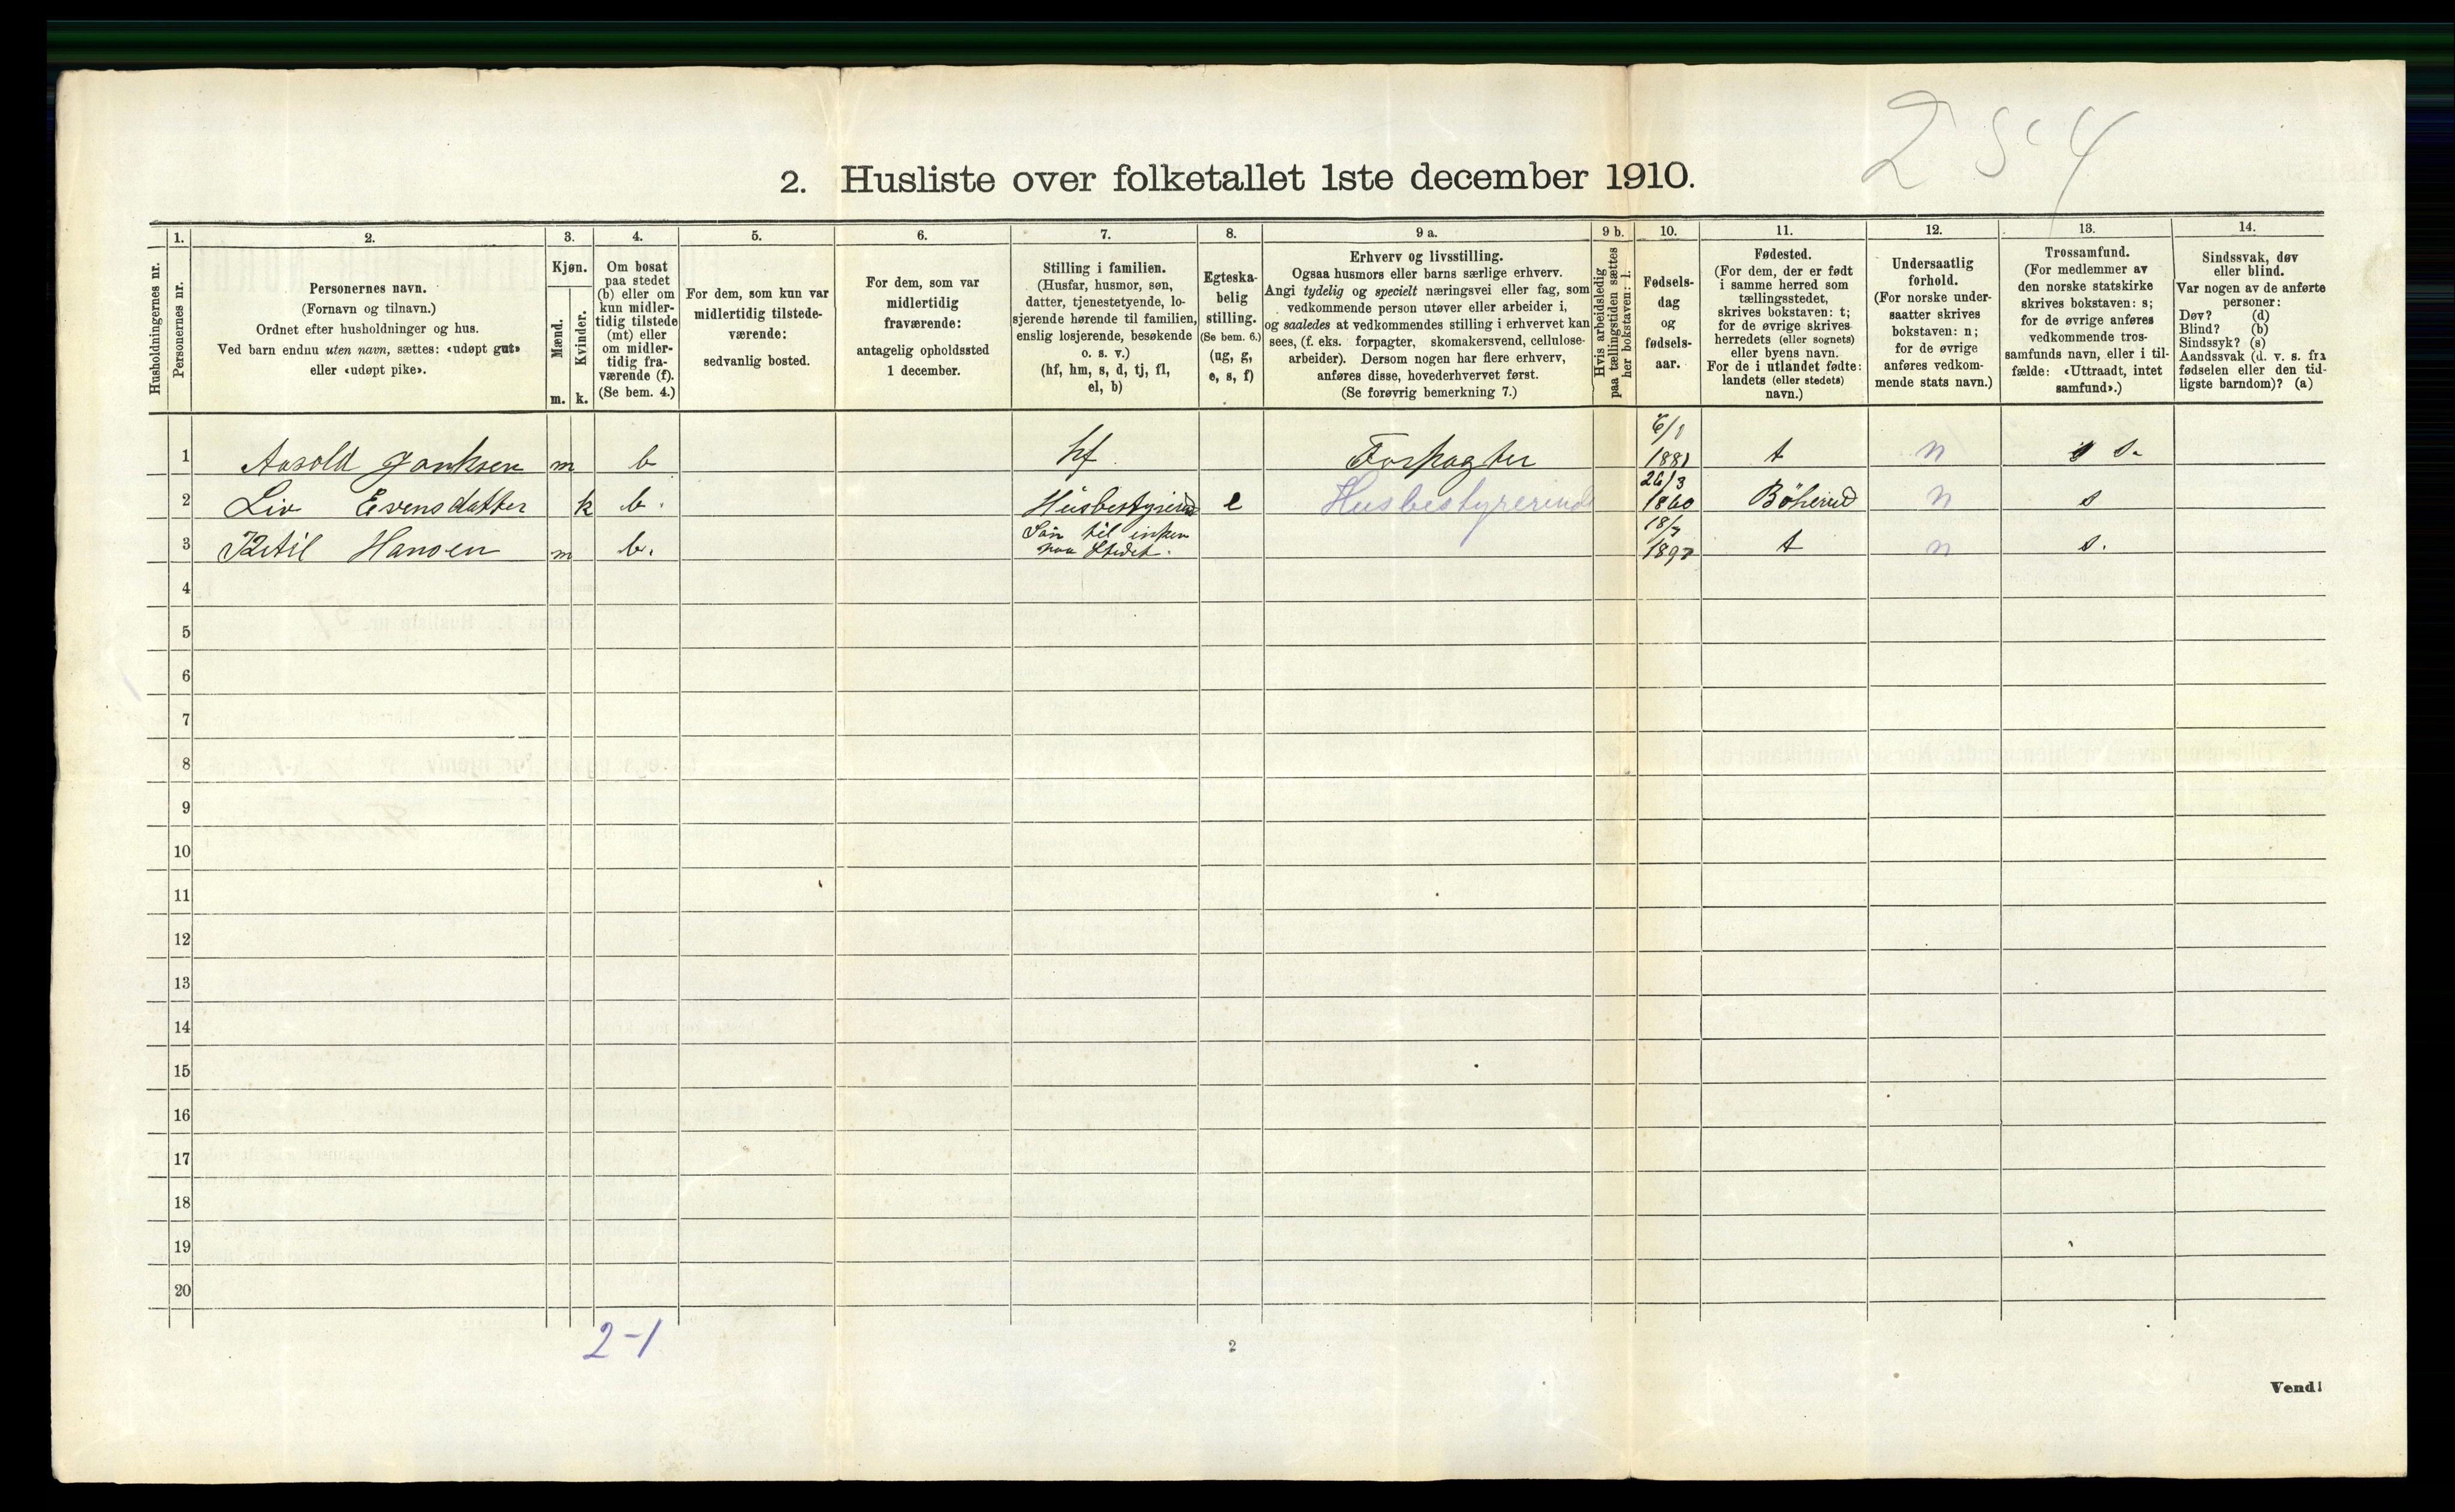 254
2. Husliste over folketallet 1ste december 1910.
Husholdningernes nr.
1.
Personernes nr.
2.
Personernes navn.
(Fornavn og tilnavn.)
Ordnet efter husholdninger og hus.
Ved barn endnu uten navn, sættes: «udøpt gut»
eller «udøpt pike».
3.
Kjøn.
Mænd.
Kvinder.
m. k.
4.
Om bosat
paa stedet
(b) eller om
kun midler-
tidig tilstede
(mt) eller
om midler-
tidig fra-
værende (f).
(Se bem. 4.)
5.
For dem, som kun var
midlertidig tilstede-
værende:
sedvanlig bosted.
6.
For dem, som var
midlertidig
fraværende:
antagelig opholdssted
1 december.
7.
Stilling i familien.
(Husfar, husmor, søn,
datter, tjenestetyende, lo-
sjerende hørende til familien,
enslig losjerende, besøkende
o. s. v.)
(hf, hm, s, d, tj, fl,
el, b)
8.
Egteska-
belig
stilling.
(Se bem. 6.)
(ug, g,
e, s, f)
9 a.
Erhverv og livsstilling.
Ogsaa husmors eller barns særlige erhverv.
Angi tydelig og specielt næringsvei eller fag, som
vedkommende person utøver eller arbeider i,
og saaledes at vedkommendes stilling i erhvervet kan
sees, (f. eks. forpagter, skomakersvend, cellulose-
arbeider). Dersom nogen har flere erhverv,
anføres disse, hovederhvervet først.
(Se forøvrig bemerkning 7.)
9 b.
Hvis arbeidsledig
paa tællingstiden sættes
her bokstaven: l.
10.
Fødsels-
dag
og
fødsels-
aar.
11.
Fødested.
(For dem, der er født
i samme herred som
tællingsstedet,
skrives bokstaven: t;
for de øvrige skrives
herredets (eller sognets)
eller byens navn.
For de i utlandet fødte:
landets (eller stedets)
navn.)
12.
Undersaatlig
forhold.
(For norske under-
saatter skrives
bokstaven: n;
for de øvrige
anføres vedkom-
mende stats navn.)
13.
Trossamfund.
(For medlemmer av
den norske statskirke
skrives bokstaven: s;
for de øvrige anføres
vedkommende tros-
samfunds navn, eller i til-
fælde: «Uttraadt, intet
samfund».)
14.
Sindssvak, døv
eller blind.
Var nogen av de anførte
personer:
Døv? (d)
Blind? (b)
Sindssyk? (s)
Aandssvak (d. v. s. fra
fødselen eller den tid-
ligste barndom)? (a)
1 m b hf Forpagter 1881 t n s.
2 Liv Evensdatter k b. Husbestyrerind e Husbestyrerind 26/3 1860 Böherred n s
3 Ketil Hansen m b. Sön til enken paa Stedet. t n s.
4
5
6
7
8
9
10
11
12
13
14
15
16
17
18
19
20
2-1
2
Vend!